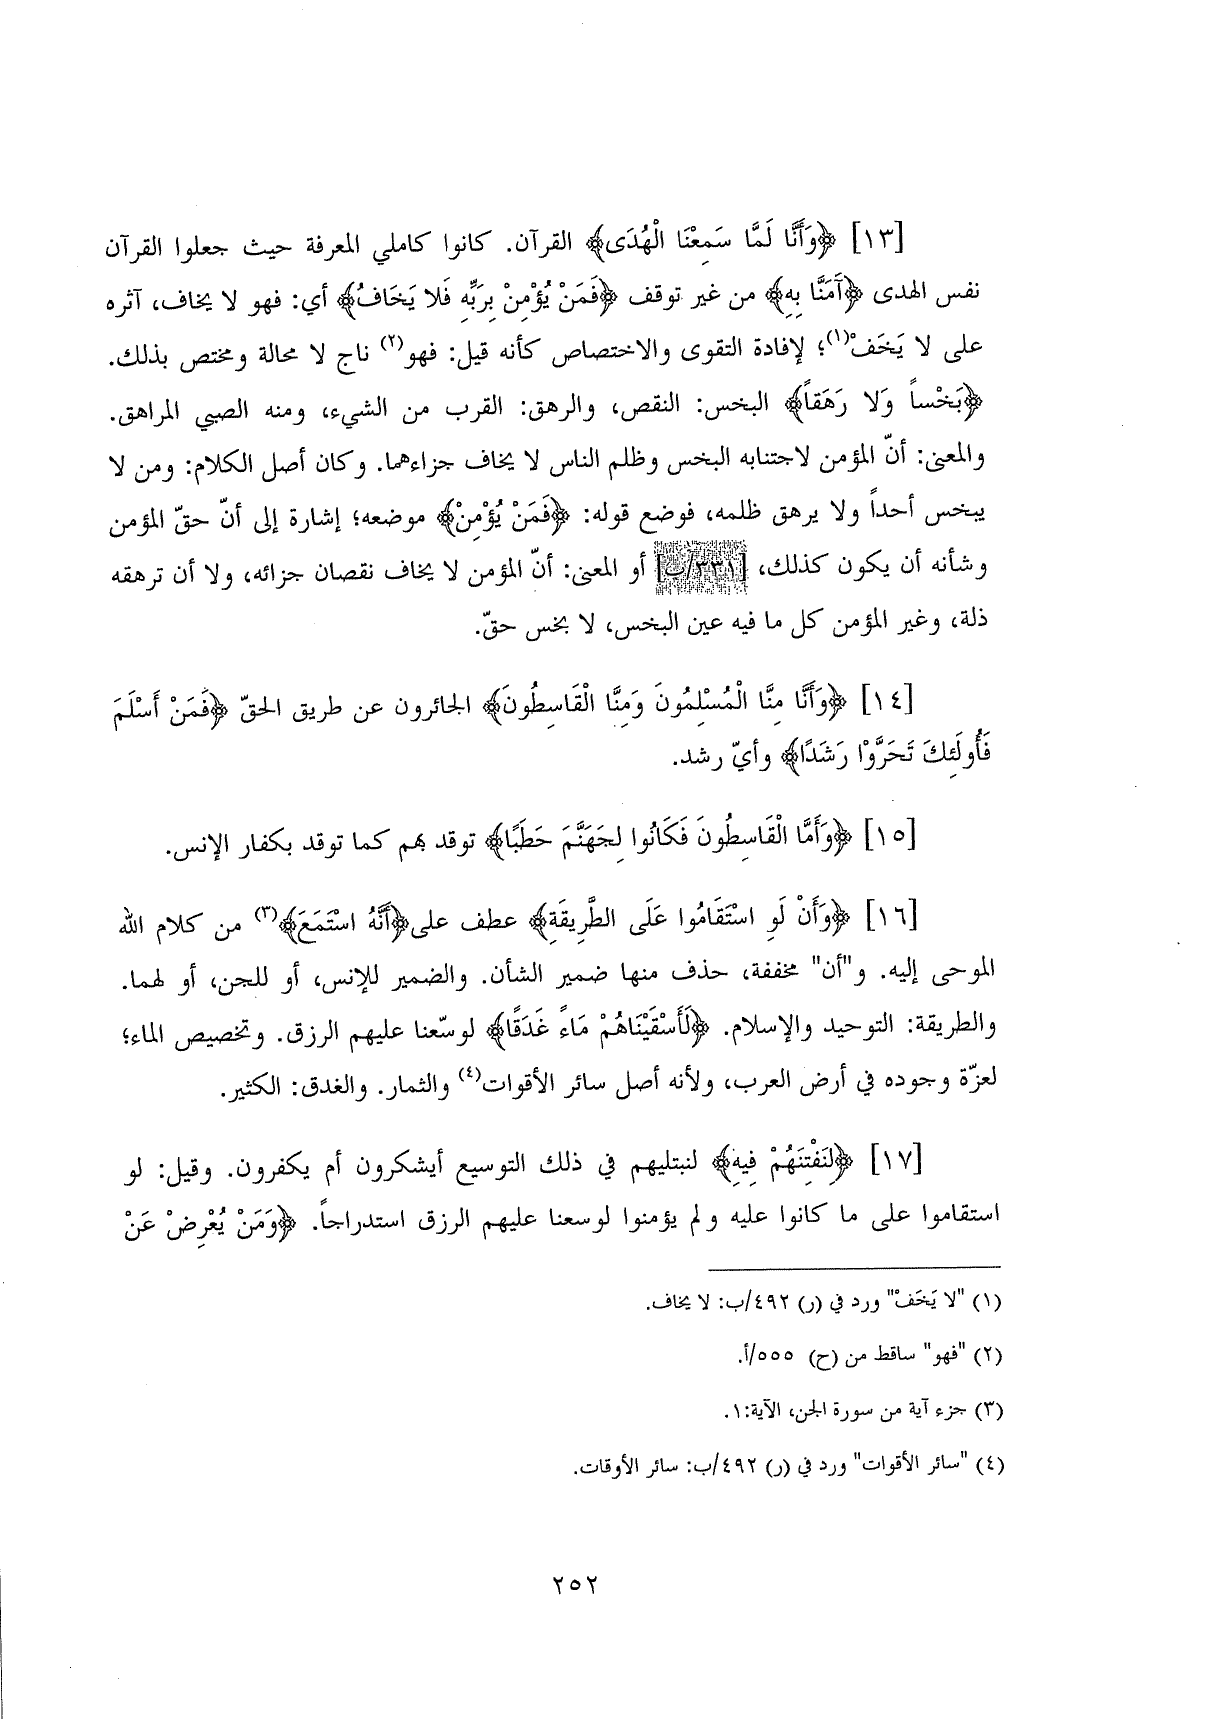 [١٣] ﴿وَأَنَّا لَمَّا سَمِعْنَا الْهُدَى﴾ القرآن. كانوا كاملي المعرفة حيث جعلوا القرآن
نفس الهدى ﴿آَمَنَّا بِهِ﴾ من غير توقف ﴿فَمَنْ يُؤْمِنْ بِرَبِّهِ فَلا يَخَافُ﴾ أي: فهو لا يخاف، آثره
على لا يَخَفْ(١)؛ لإفادة التقوى والاختصاص كأنه قيل: فهو(٢) ناج لا محالة ومختص بذلك.
﴿بَخْساً وَلا رَهَقاً﴾ البخس: النقص، والرهق: القرب من الشيء، ومنه الصبي المراهق.
والمعنى: أنّ المؤمن لاجتنابه البخس وظلم الناس لا يخاف جزاءهما. وكان أصل الكلام: ومن لا
يبخس أحداً ولا يرهق ظلمه، فوضع قوله: ﴿فَمَنْ يُؤْمِنْ﴾ موضعه؛ إشارة إلى أنّ حقّ المؤمن
وشأنه أن يكون كذلك، [٣٣١/ب] أو المعنى: أنّ المؤمن لا يخاف نقصان جزائه، ولا أن ترهقه
ذلة، وغير المؤمن كل ما فيه عين البخس، لا بخس حقّ.
[١٤] ﴿وَأَنَّا مِنَّا الْمُسْلِمُونَ وَمِنَّا الْقَاسِطُونَ﴾ الجائرون عن طريق الحقّ ﴿فَمَنْ أَسْلَمَ
فَأُولَئِكَ تَحَرَّوْا رَشَدًا﴾ وأيّ رشد.
[١٥] ﴿وَأَمَّا الْقَاسِطُونَ فَكَانُوا لِجَهَنَّمَ حَطَبًا﴾ توقد بهم كما توقد بكفار الإنس.
[١٦] ﴿وَأَنْ لَوِ اسْتَقَامُوا عَلَى الطَّرِيقَةِ﴾ عطف على﴿أَنَّهُ اسْتَمَعَ﴾(٣) من كلام الله
الموحى إليه. و"أن" مخففة، حذف منها ضمير الشأن. والضمير للإنس، أو للجن، أو لهما.
والطريقة: التوحيد والإسلام. ﴿لَأَسْقَيْنَاهُمْ مَاءً غَدَقًا﴾ لوسّعنا عليهم الرزق. وتخصيص الماء؛
لعزّة وجوده في أرض العرب، ولأنه أصل سائر الأقوات(٤) والثمار. والغدق: الكثير.
[١٧] ﴿لِنَفْتِنَهُمْ فِيهِ﴾ لنبتليهم في ذلك التوسيع أيشكرون أم يكفرون. وقيل: لو
استقاموا على ما كانوا عليه ولم يؤمنوا لوسعنا عليهم الرزق استدراجاً. ﴿وَمَنْ يُعْرِضْ عَنْ
(١) "لا يَخَفْ" ورد في (ر) ٤٩٢/ب: لا يخاف.
(٢) "فهو" ساقط من (ح) ٥٥٥/أ.
(٣) جزء آية من سورة الجن، الآية:١.
(٤) "سائر الأقوات" ورد في (ر) ٤٩٢/ب: سائر الأوقات.
٢٥٢